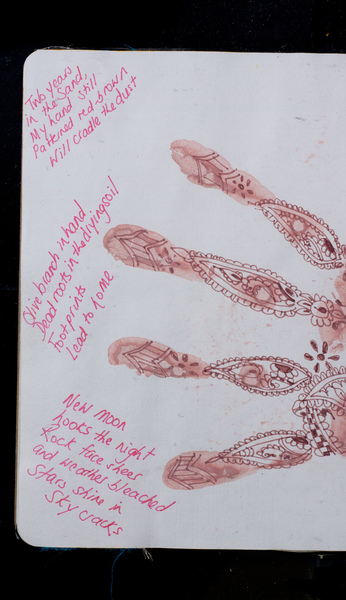 Two years
in the sand,
My hand still
Pattined red-brown
Will cradle the dust
Olive branch in hand
Dead roots in the drying soil
Footprints
Lead to home
New moon
hooks the night
Rock face sheer
and weather bleached
Stars shine in
Sky cracks